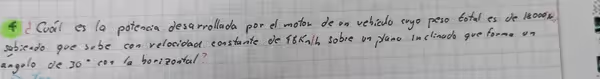 4 ¿Cuál es la potencia desarrollada por el motor de un vehiculo cuyo peso total es de 18000N
sabiendo que sube con velocidad constante de 18Km/h sobre un plano inclinado que forma un
angulo de 30° con la horizontal?